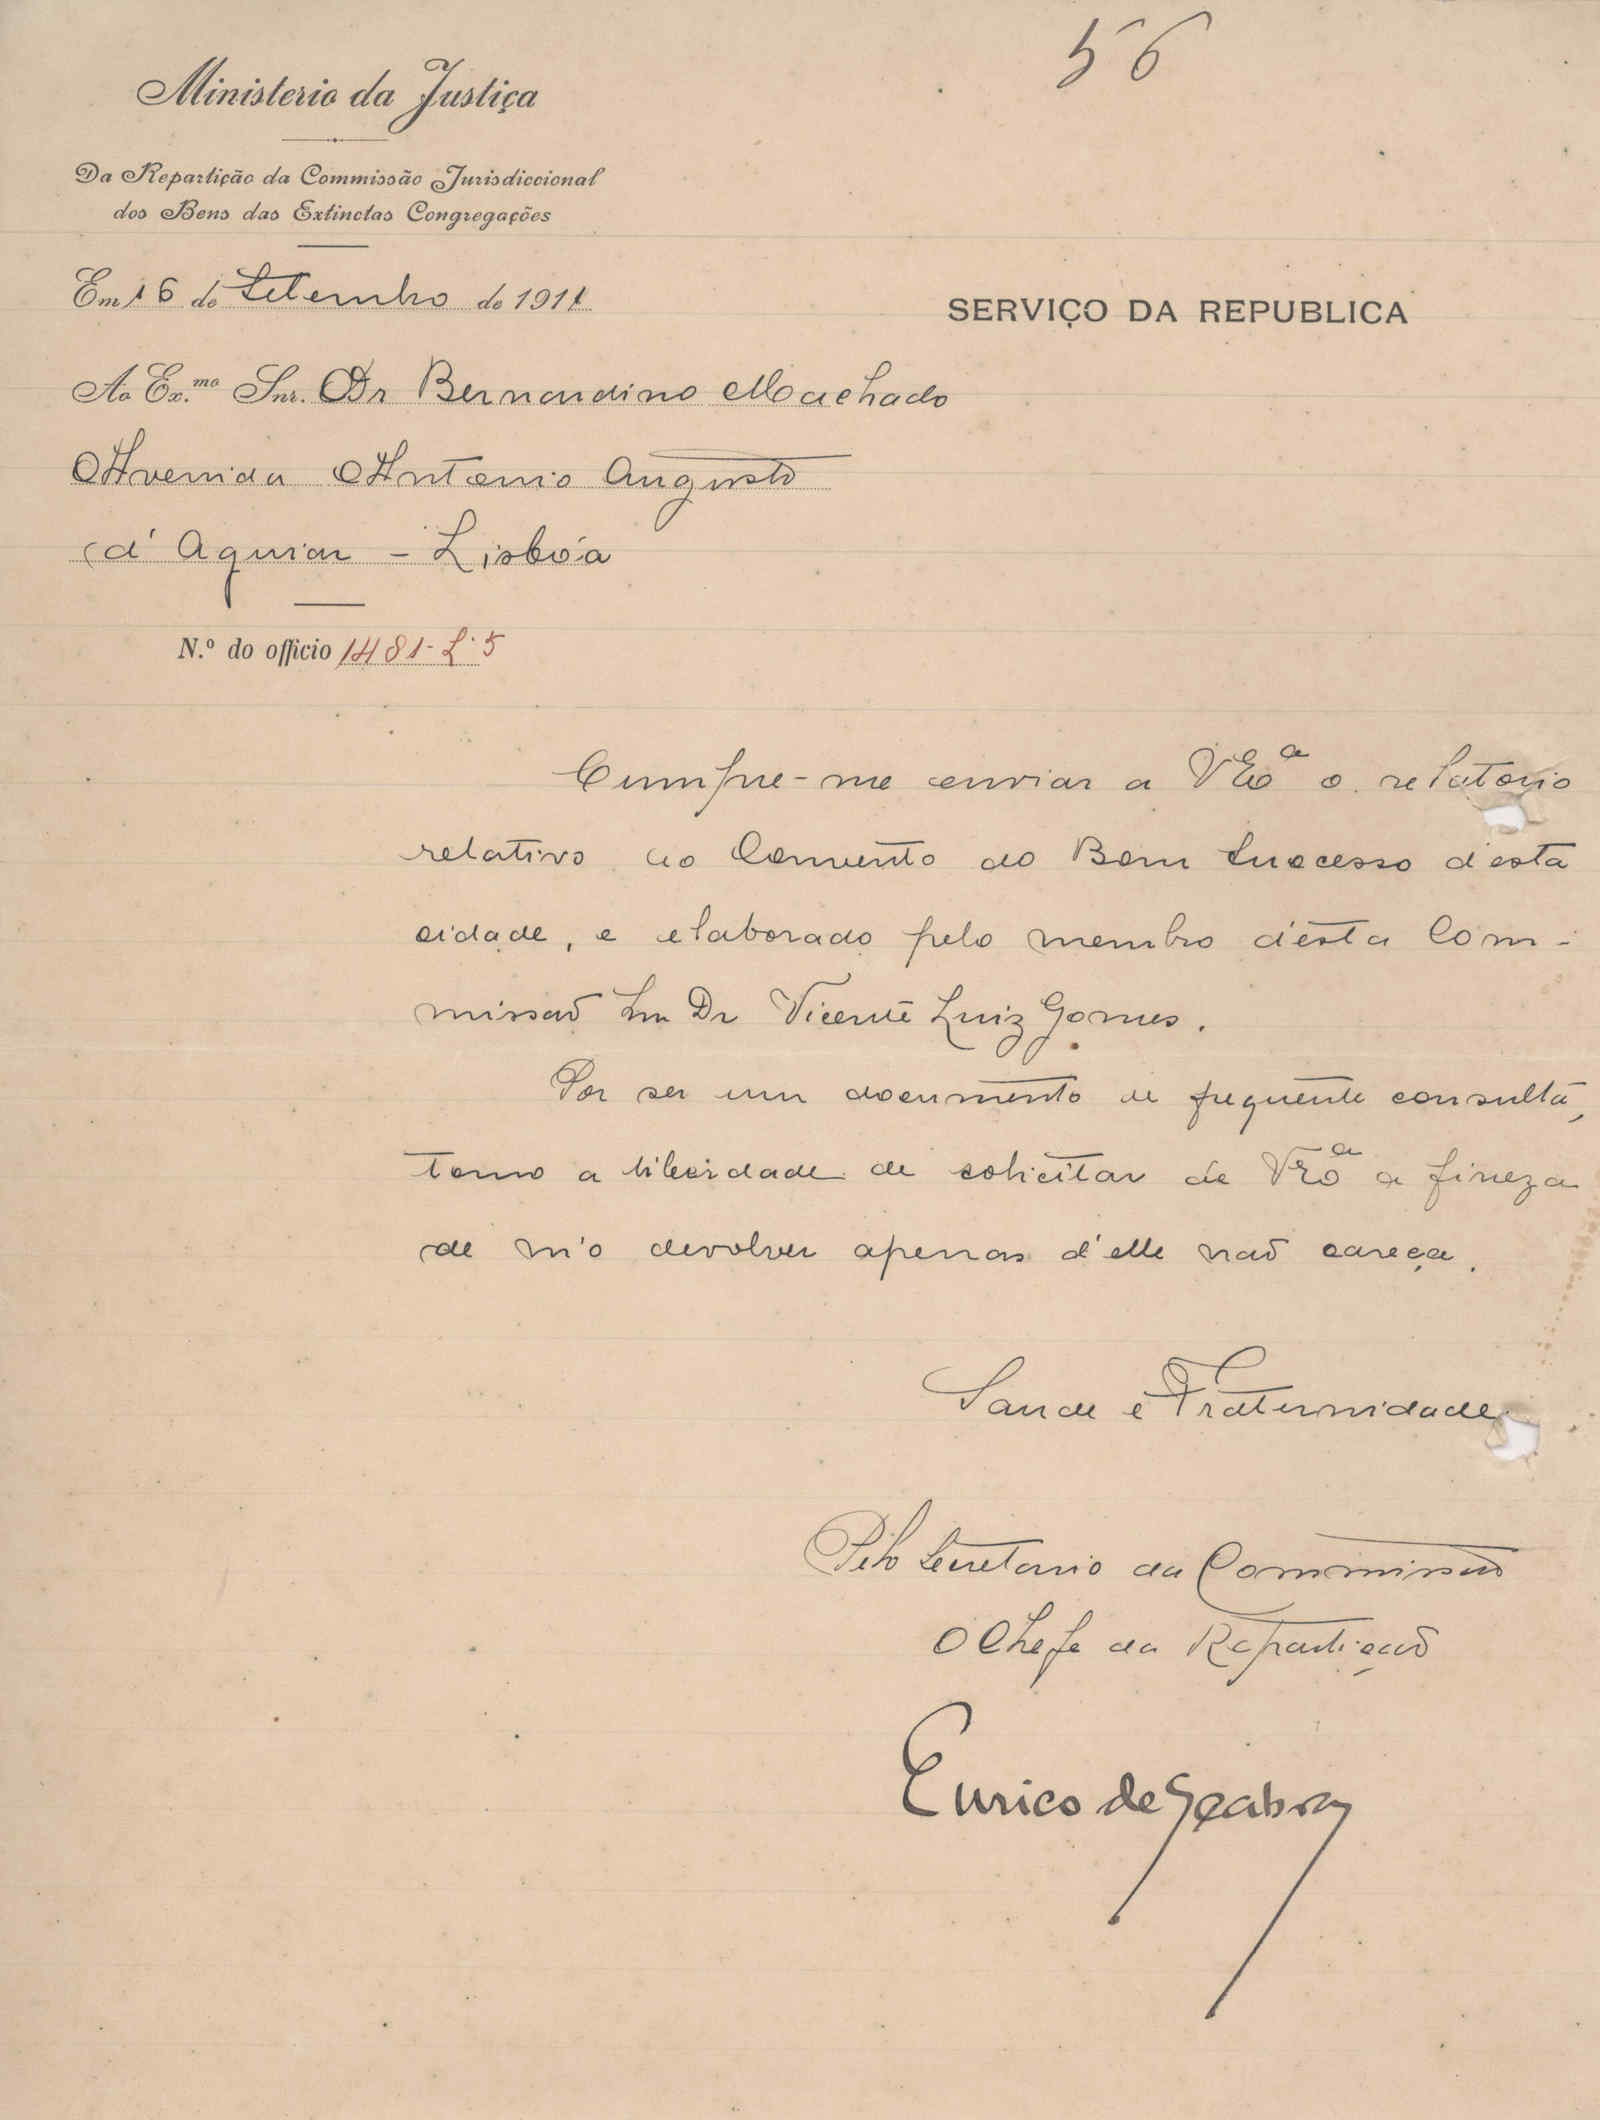 56
Ministerio da Justiça
Da Repartição da Commissão Jurisdiccional
dos Bens das Extinctas Congregações
Em 16 de Setembro de 1911
SERVIÇO DA REPUBLICA
Ao Ex.mo Snr. Dr Bernardino Machado
Avenida Antonio Augusto
d'Aguiar - Lisbôa
N.º do officio 1481-L.5
Cumpre-me enviar a VEx.ª o relatorio
relativo ao Convento do Bom Successo d'esta
cidade, e elaborado pelo membro d'esta Com-
missaõ Snr Dr Vicente Luiz Gomes.
Por ser um documento de frequente consulta,
tomo a liberdade de solicitar de VEx.ª a fineza
de m'o devolver apenas d'elle naõ careça.
Saude e Fraternidade
Pelo Secretario da Commissaõ
O Chefe da Repartiçaõ
Eurico de Seabra